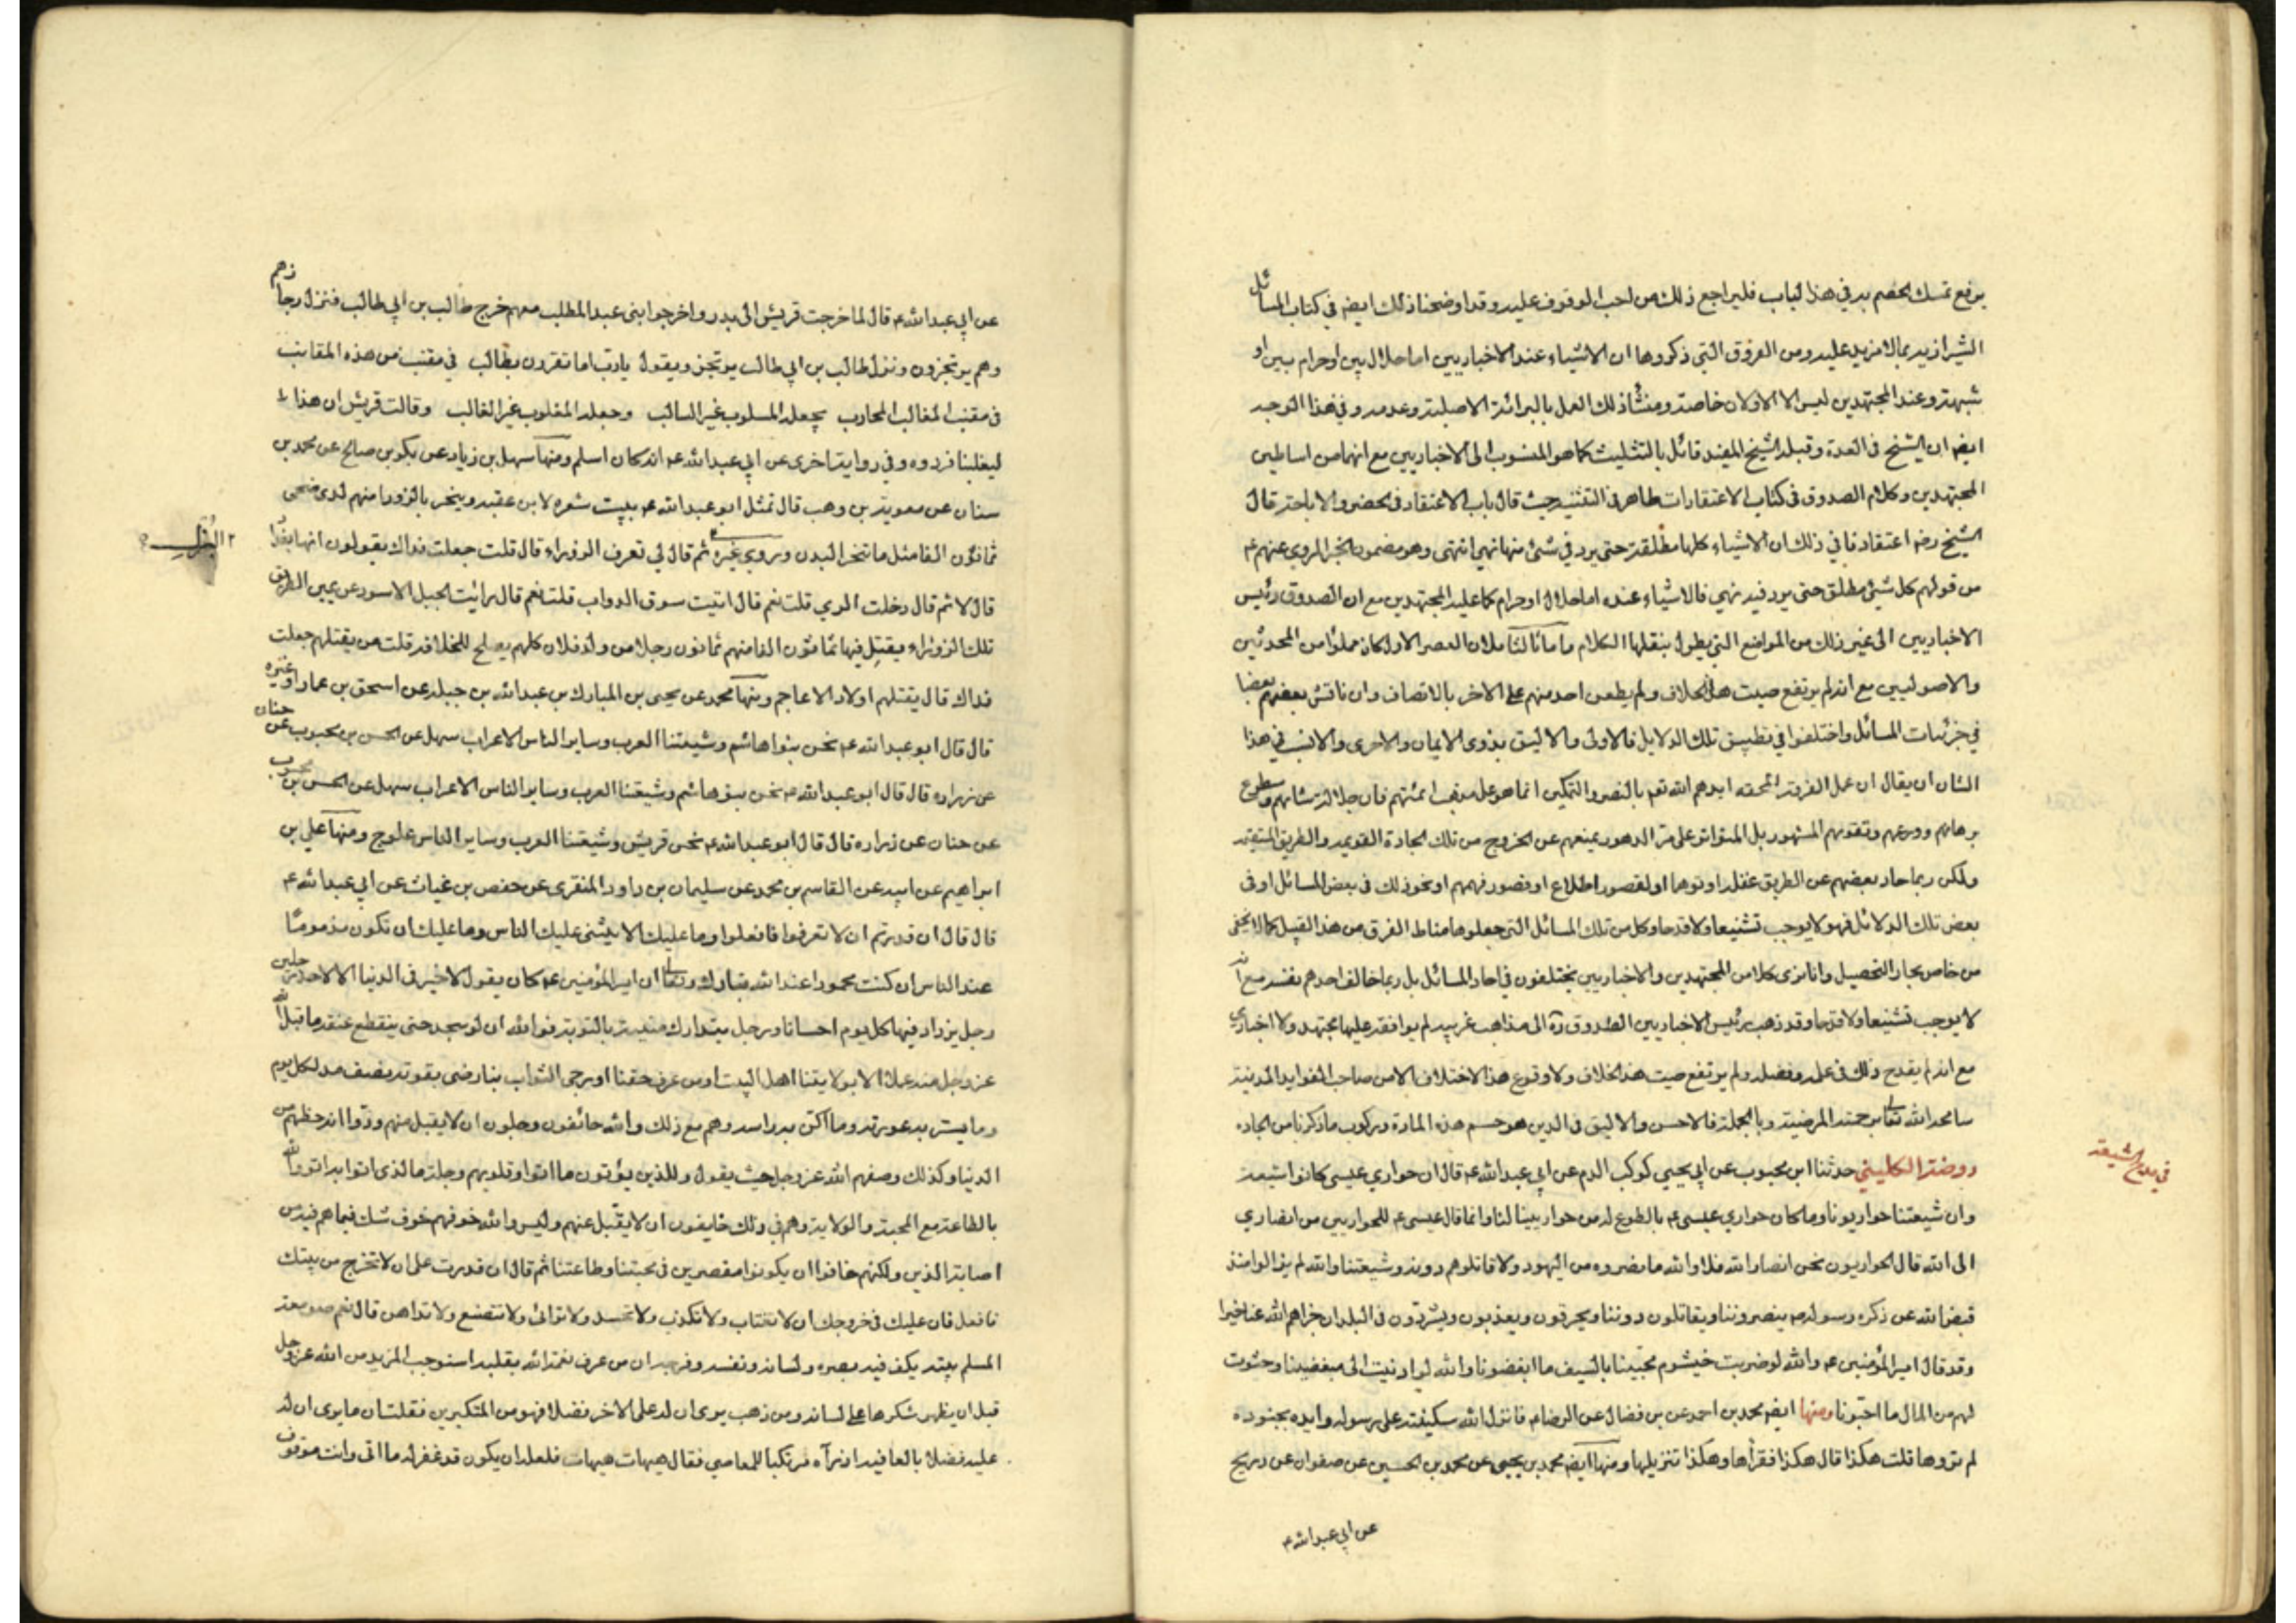 يرفع تمسك الخصم به في هذا الباب فليراجع ذلك من احب الوقوف عليه وقد اوضحنا ذلك ايضه في كتاب المسائل
الشيرازيه بما لا مزيد عليه ومن الفروق التي ذكروها ان الاشياء عند الاخباريين اما حلال بين او حرام بين او
شبهة وعند المجتهدين ليس الا الاولان خاصة ومنشأ ذلك العمل بالبرائة الاصلية وعدمه وفي هذا الوجه
ايضه ان الشيخ في العدة وقبله الشيخ المفيد قائل بالتثليث كما هو المنسوب الى الاخباريين مع انهما من اساطين
المجتهدين وكلام الصدوق في كتاب الاعتقادات ظاهر في التثنيه حيث قال باب الاعتقاد في الحضر والاباحة قال
الشيخ رضه اعتقادنا في ذلك ان الاشياء كلها مطلقة حتى يرد في شئ منها نهي انتهى وهو مضمون الخبر المروي عنهم ع
من قولهم كل شئ مطلق حتى يرد فيه نهي فالاشياء عنده اما حلال او حرام كما عليه المجتهدين مع ان الصدوق رئيس
الاخباريين الى غير ذلك من المواضع التي يطول بنقلها الكلام ان العصر الاول كان مملوا من المحدثين
والاصوليين مع انه لم يرتفع صيت هذا الخلاف ولم يطعن احد منهم على الاخر بالاتصاف وان ناقش بعضهم بعضا
في جزئيات المسائل واختلفوا في تطبيق تلك الدلايل فالاولى والاليق بذوي الايمان والاحرى والانسب في هذا
الشان ان يقال ان عمل الفرقة المحقه ايدهم الله تعه بالنصر والتمكين انما هو على مذهب ائمتهم فان جلالة شانهم وسطوع
برهانهم وورعهم وتقويهم المشهور بل المتواتر على مر الدهور يمنعهم عن الخروج من تلك الجادة القويمه والطريق المستقيمه
ولكن ربما حاد بعضهم عن الطريق غفلة او توهما او لقصور اطلاع او قصور فهمهم او نحو ذلك في بعض المسائل او في
بعض تلك الدلائل فهو لا يوجب تشنيعا ولا قدحا وكل من تلك المسائل التي جعلوها مناط الفرق من هذ القبيل كما لا يخفى
من خاص بحار التحصيل وانا نرى كلا من المجتهدين والاخباريين يختلفون في احاد المسائل بل ربما خالف احدهم نفسه مع انه
لا يوجب تشنيعا ولا قدحا وقد ذهب رئيس الاخباريين الصدوق ره الى مذاهب غريبه لم يوافقه عليها مجتهد ولا اخباري
مع انه لم يقدح ذلك في علمه وفضله ولم يرتفع صيت هذ الخلاف ولا وقوع هذ الاختلاف الا من صاحب الفوايد المدينة
سامحه الله تعا برحمته المرضية وبالجملة فالاحسن والاليق في الدين هو حسم هذه المادة وركوب ما ذكرنا من الجاده
في مدح الشيعة
روضة الكليني حدثنا ابن محبوب عن ابي يحيى كوكب الدم عن ابي عبد الله ع قال ان حواري عيسى كانوا شيعة
وان شيعتنا حواريونا وما كان حواري عيسى ع باطوع له من حواريينا لنا وانما قال عيسى ع للحواريين من انصاري
الى الله قال الحواريون نحن انصار الله فلا والله ما نصروه من اليهود ولا قاتلوهم دونه وشيعتنا والله لم يزالوا منذ
قبض الله عن ذكره رسوله ص ينصروننا ويقاتلون دوننا ويحرقون ويعذبون ويشردون في البلدان جزاهم الله عنا خيرا
وقد قال امير المؤمنين ع والله لو ضربت خيشوم محبينا بالسيف ما ابغضونا والله لو ادنيت الى مبغضينا وحثوت
لهم من المال ما احبونا ومنها ايضه محمد بن احمد عن بن فضال عن الرضا ع فانزل الله سكينته على رسوله وايده بجنود ه
لم تروها قلت هكذا قال هكذا فقرأها وهكذا تنزيلها ومنها ايضه محمد بن يحيى عن محمد بن الحسين عن صفوان عن ذريح
عن ابي عبد الله ع
عن ابي عبد الله ع قال لما خرجت قريش الى بدر واخرجوا بنى عبد المطلب معهم خرج طالب بن ابي طالب فنزل رجازهم
وهم يرتجزون ونزل طالب بن ابي طالب يرتجز ويقول يا رب اما تغزون بطالب في مقنب من هذه المقانب
في مقنب المغالب المحارب بجعله المسلوب غير السالب وجعله المغلوب غير الغالب وقالت قريش ان هذا
ليغلبنا فردوه وفي رواية اخرى عن ابي عبد الله ع انه كان اسلم ومنها سهل بن زياد عن بكر بن صالح عن محمد بن
سنان عن معوية بن وهب قال تمثل ابو عبد الله ع ببيت شعر لابن عقبه وينحر بالزورا منهم لدى ضحى
ثمانون الفا مثل ما تنحر البدن وروي غيره ثم قال لي تعرف الزوراء قال قلت جعلت فداك يقولون انها بغداد
البزل
قال لا ثم قال دخلت الري قلت نعم قال اتيت سوق الدواب قلت نعم قال رايت الجبل الاسود عن يمين الطريق
تلك الزوراء يقتل فيها ثمانون الفا منهم ثمانون رجلا من ولد فلان كلهم يصلح للخلافة قلت من يقتلهم جعلت
فداك قال يقتلهم اولاد الاعاجم ومنها محمد عن يحيى بن المبارك بن عبد الله بن جبله عن اسحق بن عمار او غيره
قال قال ابو عبد الله ع نحن بنوا هاشم وشيعتنا العرب وساير الناس الاعراب سهل عن الحسن بن محبوب عن حنان
عن زراره قال قال ابو عبد الله ع نحن بنو هاشم وشيعتنا العرب وساير الناس الاعراب سهل عن الحسن بن محبوب
عن حنان عن زراره قال قال ابو عبد الله ع نحن قريش وشيعتنا العرب وساير الناس علوج ومنها علي بن
ابراهيم عن ابيه عن القاسم بن محمد عن سليمان بن داود المنقري عن حفص بن غياث عن ابي عبد الله ع
قال قال ان قدرتم ان لا تعرفوا فافعلوا وما عليك الا يثنى عليك الناس وما عليك ان تكون مذموما
عند الناس ان كنت محمودا عند الله تبارك وتعا ان امير المؤمنين ع كان يقول لا خير في الدنيا الا لاحد رجلين
رجل يزداد فيها كل يوم احسانا ورجل يتدارك منيته بالتوبة فوالله ان لو سجد حتى ينقطع عنقه ما قبل الله
عز وجل منه عملا الا بولايتنا اهل البيت او من عرف حقنا او رجى الثواب بنا رضى بقوته نصف مد لكل يوم
وما يستر به عورته وما اكن به راسه وهم مع ذلك والله خائفون وجلون ان لا يقبل منهم ودوا انه حظهم من
الدنيا وكذلك وصفهم الله عز وجل حيث يقول وللذين يؤتون ما اتوا وقلوبهم وجلة ما الذي اتوا به اتو والله
بالطاعة مع المحبة والولاية وهم في ذلك خايفون ان لا يقبل عنهم وليس والله خوفهم خوف شك فيما هم فيه من
اصابة الدين ولكنهم خافوا ان يكونوا مقصرين في محبتنا وطاعتنا ثم قال ان قدرت على ان لا تخرج من بيتك
فافعل فان عليك في خروجك ان لا تغتاب ولا تكذب ولا تحسد ولا ترائى ولا تتصنع ولا تداهن قال نعم صومعة
المسلم بيته يكف فيه بصره ولسانه ونفسه وفرجه ان من عرف نعمة الله بقلبه استوجب المزيد من الله عز وجل
قبل ان يظهر شكرها على لسانه ومن ذهب يرى ان له على الاخر فضلا فهو من المتكبرين فقلت ان ما يرى ان له
عليه فضلا بالعافيه اذ رآه مرتكبا للمعاصي فقال هيهات هيهات فلعله ان يكون قد غفر له ما اتى وانت موقوف